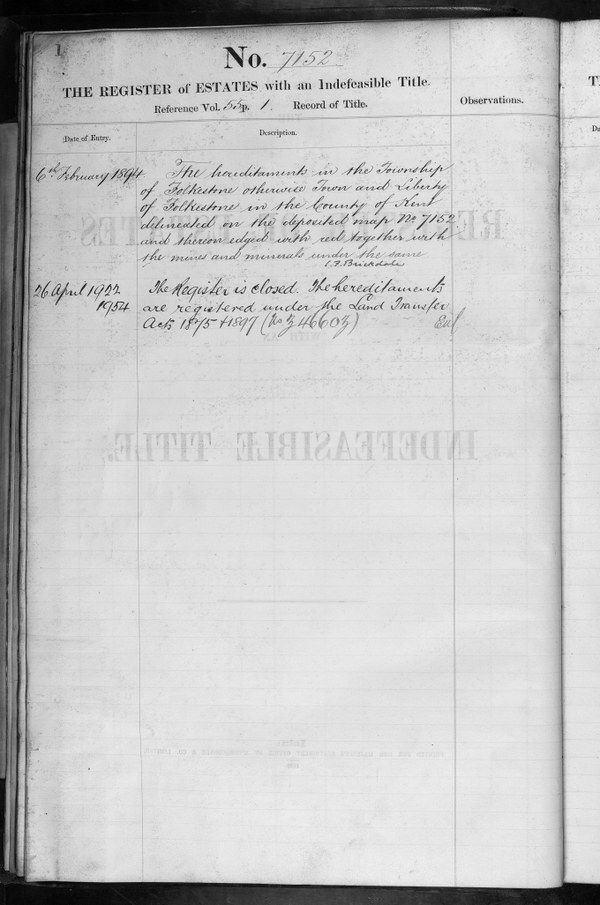 1
No. 7152
THE REGISTER of ESTATES with an Indefeasible Title.
Reference Vol. 55 p. 1. Record of Title.
Observations.
Date of Entry.
Description.
6th February 1894
The hereditaments in the Township
of Folkestone otherwise Town and Liberty
of Folkestone in the County of Kent
delineated on the deposited map No 7152
and thereon edged with red together with
the mines and minerals under the same
C. F. Brickdale
26 April 1922
The Register is closed. The hereditaments
1954
are registered under the Land Transfer
Acts 1875 & 1897 (No